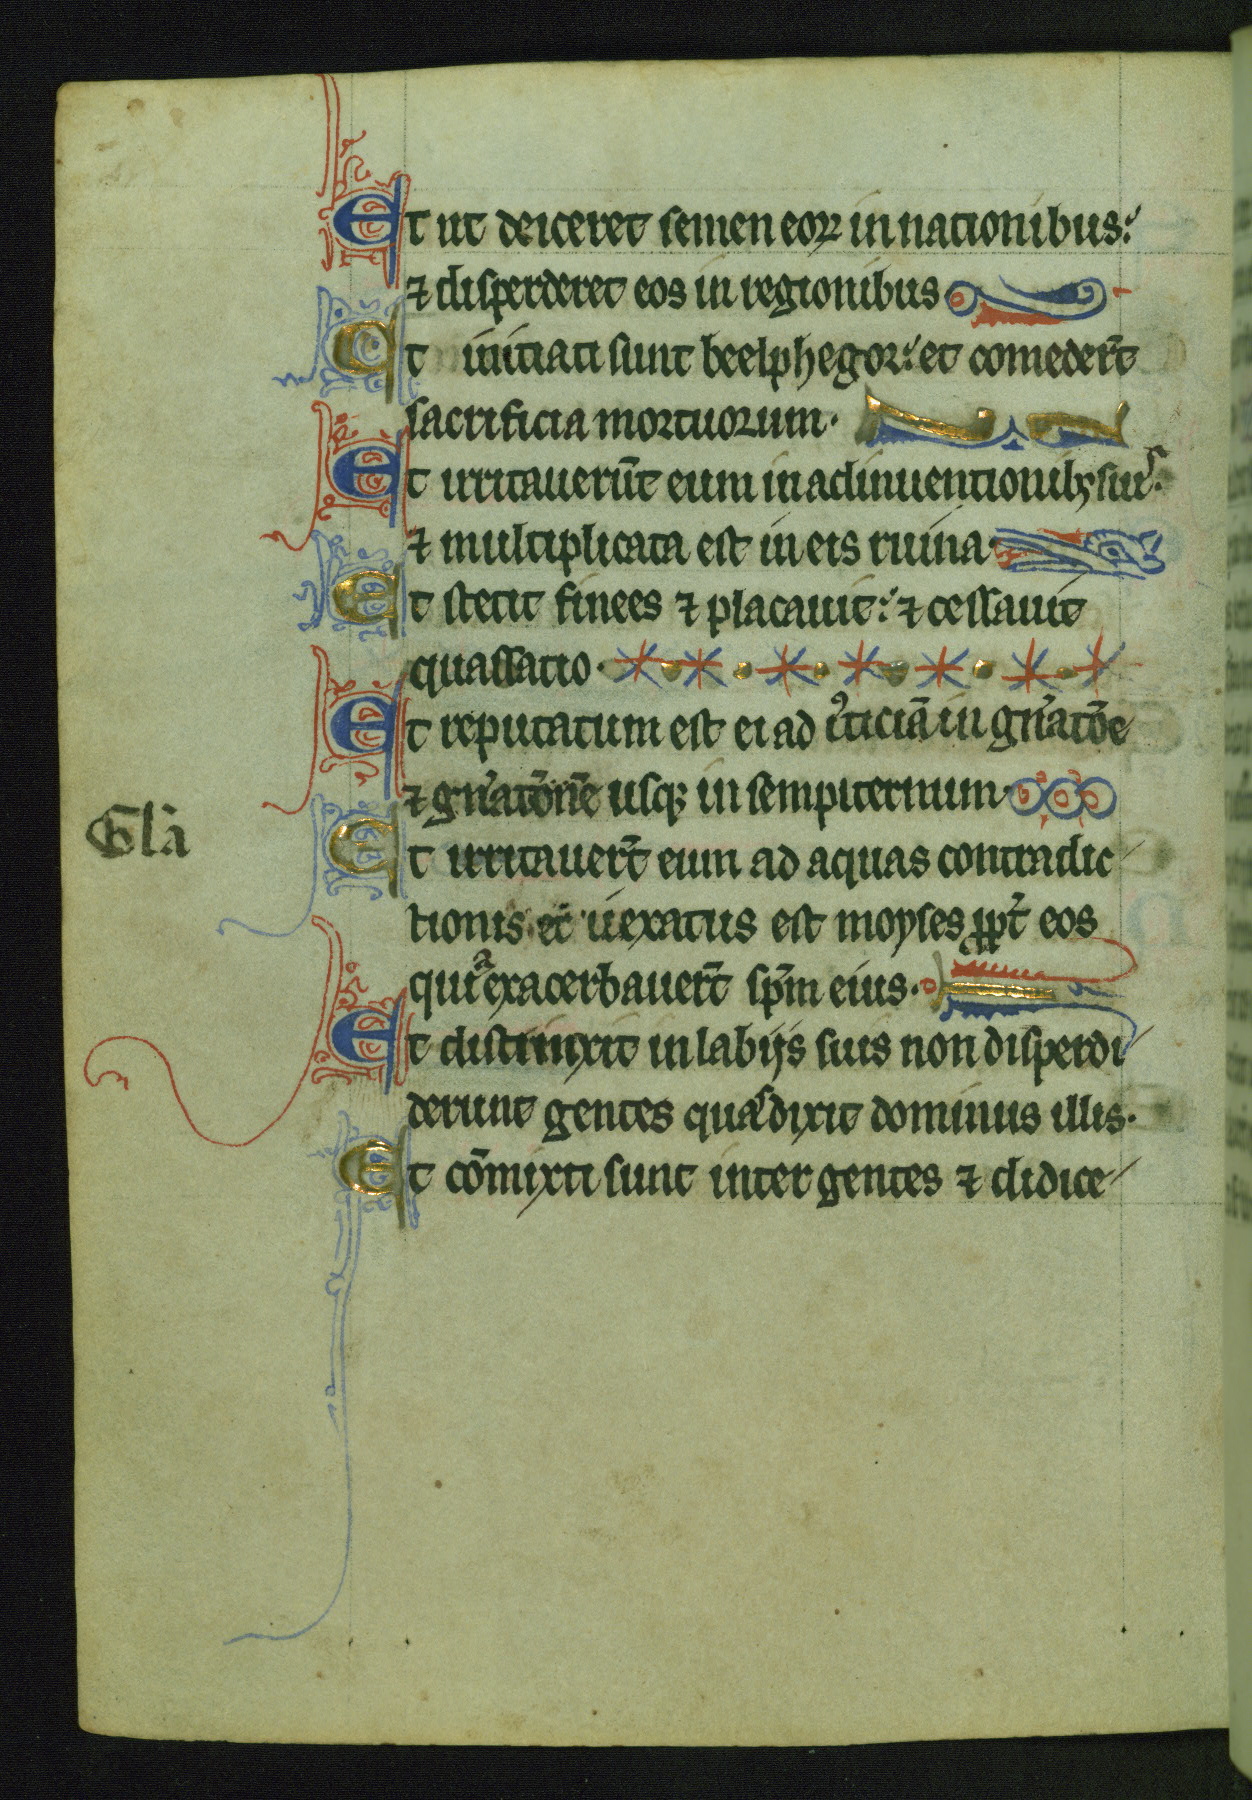 Et ut deiceret semen eoꝝ in nationibus:
⁊ disperderet eos in regionibus
Et initiati sunt beelphegor: et comeder̄t
sacrificia mortuorum.
Et irritauerūt eum in adinuentionibꝫ suis.
⁊ multiplicata est in eis ruina.
Et stetit finees ⁊ placauit: ⁊ cessauit
quassatio.
Et reputatum est ei ad iꝰticiā in gn̄atōe
⁊ gn̄atōnē usqꝫ in sempiternum.
Gl̄a
Et irritauer̄t eum ad aquas contradic
tionis et uexatus est moyses ꝓpt̄ eos
quia exacerbauer̄t sp̄m eius.
Et distinxit in labijs suis non disperdi
derunt gentes quas dixit dominus illis.
Et cōmixti sunt inter gentes ⁊ didice